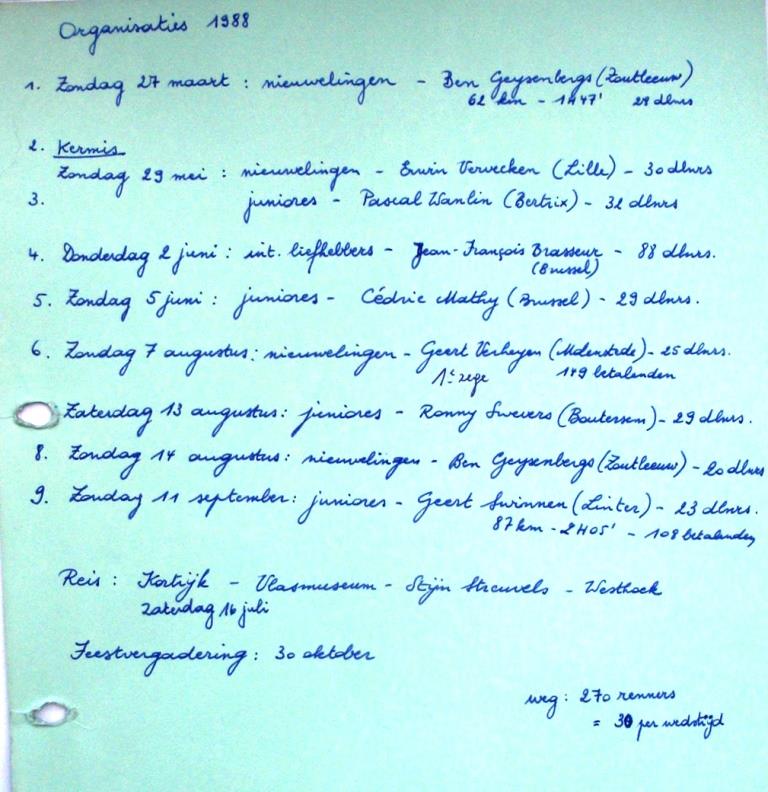 Organisaties 1988
1. Zondag 27 maart : nieuwelingen - Ben Geysenbergs (Zoutleeuw)
62 km - 1H47' 29 dlnrs
2. Kermis
Zondag 29 mei : nieuwelingen - Erwin Vervecken (Lille) - 30 dlnrs
3. juniores - Pascal Wanlin (Bertrix) - 32 dlnrs
4. Donderdag 2 juni : int. liefhebbers - Jean-François Brasseur - 88 dlnrs.
(Brussel)
5. Zondag 5 juni : juniores - Cédric Mathy (Brussel) - 29 dlnrs.
6. Zondag 7 augustus : nieuwelingen - Geert Verheyen (Molenstede) - 25 dlnrs.
1e zege 149 betalenden
Zaterdag 13 augustus : juniores - Ronny Swevers (Boutersem) - 29 dlnrs.
8. Zondag 14 augustus : nieuwelingen - Ben Geysenbergs (Zoutleeuw) - 20 dlnrs
9. Zondag 11 september : juniores - Geert Swinnen (Linter) - 23 dlnrs.
87 km - 2H05' - 108 betalenden
Reis : Kortrijk - Vlasmuseum - Stijn Streuvels - Westhoek
Zaterdag 16 juli
Feestvergadering : 30 oktober
weg : 270 renners
= 30 per wedstrijd